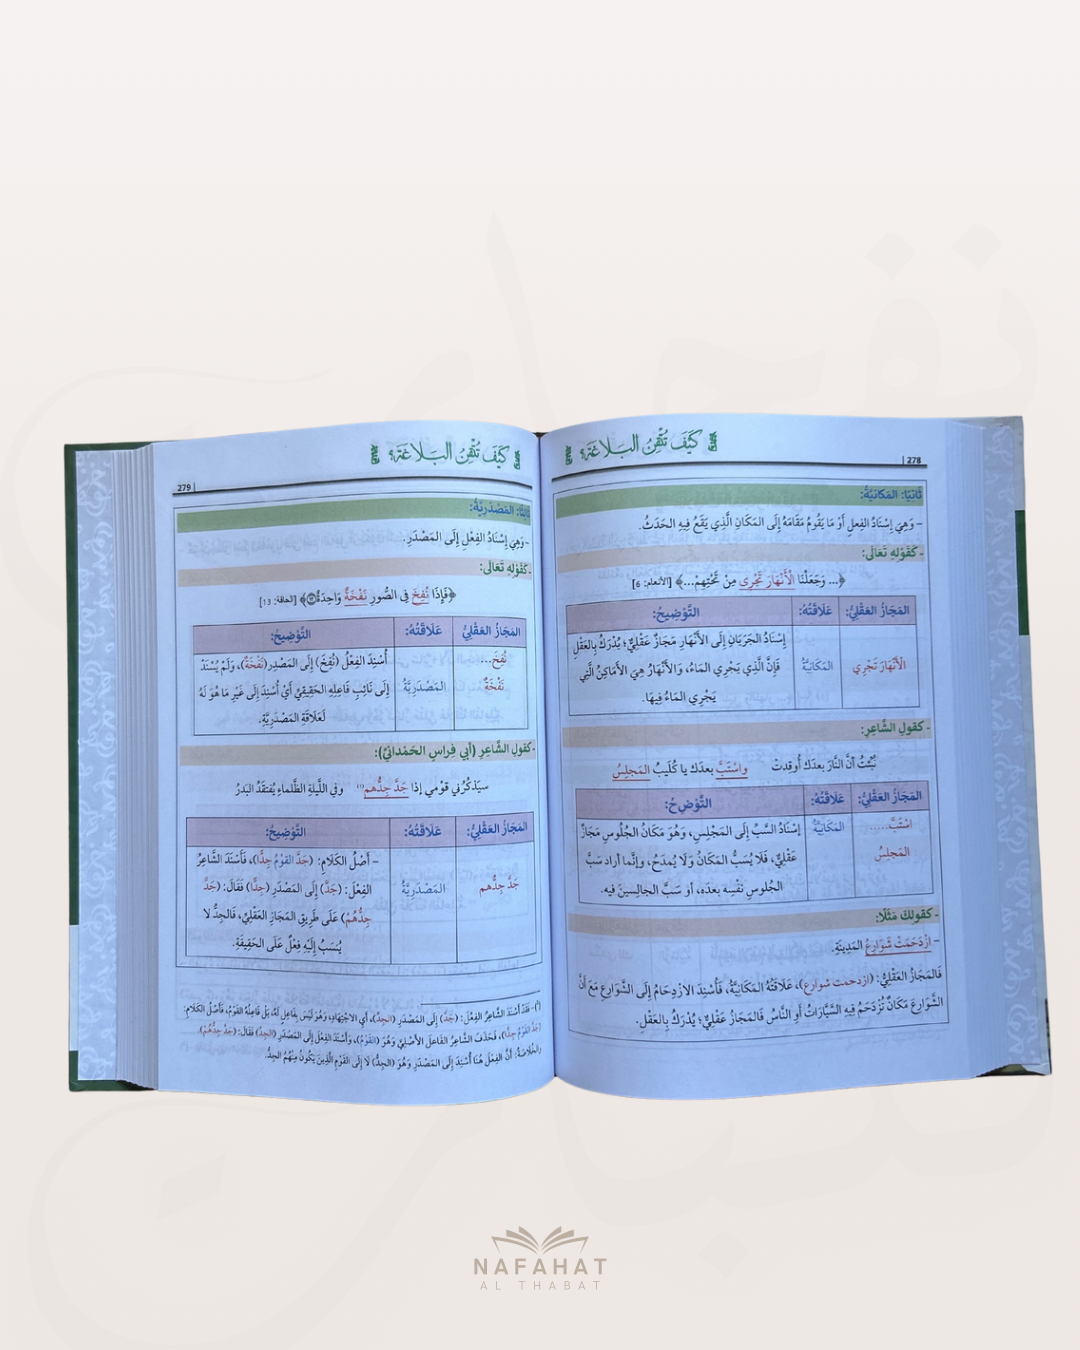 278
كَيْفَ تُتْقِنُ البَلَاغَةَ؟
ثَانِيًا: المَكَانِيَّةُ:
- وَهِيَ إِسْنَادُ الفِعْلِ أَوْ مَا يَقُومُ مَقَامَهُ إِلَى المَكَانِ الَّذِي يَقَعُ فِيهِ الحَدَثُ.
- كَقَوْلِهِ تَعَالَى:
﴿... وَجَعَلْنَا الْأَنْهَارَ تَجْرِي مِنْ تَحْتِهِمْ...﴾ [الأنعام: 6]
المَجَازُ العَقْلِيُّ: عَلَاقَتُهُ: التَّوْضِيحُ:
الْأَنْهَارَ تَجْرِي
المَكَانِيَّةُ
إِسْنَادُ الجَرَيَانِ إِلَى الأَنْهَارِ مَجَازٌ عَقْلِيٌّ؛ يُدْرَكُ بِالعَقْلِ
فَإِنَّ الَّذِي يَجْرِي المَاءُ، وَالأَنْهَارُ هِيَ الأَمَاكِنُ الَّتِي
يَجْرِي المَاءُ فِيهَا.
- كقولِ الشَّاعِرِ:
نُبِّئْتُ أنَّ النَّارَ بعدَك أُوقِدتْ واسْتَبَّ بعدَك يا كُلَيبُ المَجلِسُ
المَجَازُ العَقْلِيُّ: عَلَاقَتُهُ: التَّوْضِحُ:
اسْتَبَّ.....
المَجلِسُ
المَكَانِيَّةُ
إِسْنَادُ السَّبِّ إِلَى المَجْلِسِ، وَهُوَ مَكَانُ الجُلُوسِ مَجَازٌ
عَقْلِيٌّ، فَلَا يُسَبُّ المَكَانُ وَلَا يُمدَحُ، وإنَّما أراد سَبَّ
الجُلوسِ نَفْسِه بعدَه، أو سَبَّ الجالِسِينَ فيه.
- كقولك مَثَلًا:
- ازْدَحَمَتْ شَوَارِعُ المَدِينَةِ.
فَالمَجَازُ العَقْلِيُّ: (ازدحمت شوارع)، عَلَاقَتُهُ المَكَانِيَّةُ، فَأُسْنِدَ الازْدِحَامُ إِلَى الشَّوَارِعِ مَعَ أَنَّ
الشَّوَارِعَ مَكَانٌ تَزْدَحِمُ فِيهِ السَّيَّارَاتُ أَوِ النَّاسُ فَالمَجَازُ عَقْلِيٌّ؛ يُدْرَكُ بِالعَقْلِ.
279
كَيْفَ تُتْقِنُ البَلَاغَةَ؟
ثَالِثًا: المَصْدَرِيَّةُ:
- وَهِيَ إِسْنَادُ الفِعْلِ إِلَى المَصْدَرِ.
- كَقَوْلِهِ تَعَالَى:
﴿فَإِذَا نُفِخَ فِي الصُّورِ نَفْخَةٌ وَاحِدَةٌ﴾ [الحاقة: 13]
المَجَازُ العَقْلِيُّ عَلَاقَتُهُ: التَّوْضِيحُ:
نُفِخَ...
نَفْخَةٌ
المَصْدَرِيَّةُ
أُسْنِدَ الفِعْلُ (نُفِخَ) إِلَى المَصْدَرِ (نَفْخَةٌ)، وَلَمْ يُسْنَدْ
إِلَى نَائِبِ فَاعِلِهِ الحَقِيقِيِّ أَيْ أُسْنِدَ إِلَى غَيْرِ مَا هُوَ لَهُ
لِعَلَاقَةِ المَصْدَرِيَّةِ.
- كقولِ الشَّاعِرِ (أبي فِراسٍ الحَمْدانيِّ):
سيَذكُرُني قوْمي إذا جَدَّ جِدُّهم(١) وفي اللَّيلةِ الظَّلماءِ يُفتقَدُ البَدرُ
المَجَازُ العَقْلِيُّ: عَلَاقَتُهُ: التَّوْضِيحُ:
جَدَّ جِدُّهم
المَصْدَرِيَّةُ
- أَصْلُ الكَلَامِ: (جَدَّ القَوْمُ جِدًّا)، فَأَسْنَدَ الشَّاعِرُ
الفِعْلَ: (جَدَّ) إِلَى المَصْدَرِ (جِدًّا) فَقَالَ: (جَدَّ
جِدُّهُمْ) عَلَى طَرِيقِ المَجَازِ العَقْلِيِّ، فَالجِدُّ لَا
يُنْسَبُ إِلَيْهِ فِعْلٌ عَلَى الحَقِيقَةِ.
(١) - فَقَدْ أَسْنَدَ الشَّاعِرُ الفِعْلَ: (جَدَّ) إِلَى المَصْدَرِ (الجِدِّ)، أَيِ الاجْتِهَادِ، وَهُوَ لَيْسَ بِفَاعِلٍ لَهُ، بَلْ فَاعِلُهُ القَوْمُ، فَأَصْلُ الكَلَامِ:
(جَدَّ القَوْمُ جِدًّا)، فَحَذَفَ الشَّاعِرُ الفَاعِلَ الأَصْلِيَّ وَهُوَ (القَوْمُ)، وَأَسْنَدَ الفِعْلَ إِلَى المَصْدَرِ (الجِدِّ) فَقَالَ: (جَدَّ جِدُّهُمْ).
والخُلَاصَةُ: أَنَّ الفِعْلَ هُنَا أُسْنِدَ إِلَى المَصْدَرِ وَهُوَ (الجِدُّ) لَا إِلَى القَوْمِ الَّذِينَ يَكُونُ مِنْهُمُ الجِدُّ.
NAFAHAT
AL THABAT